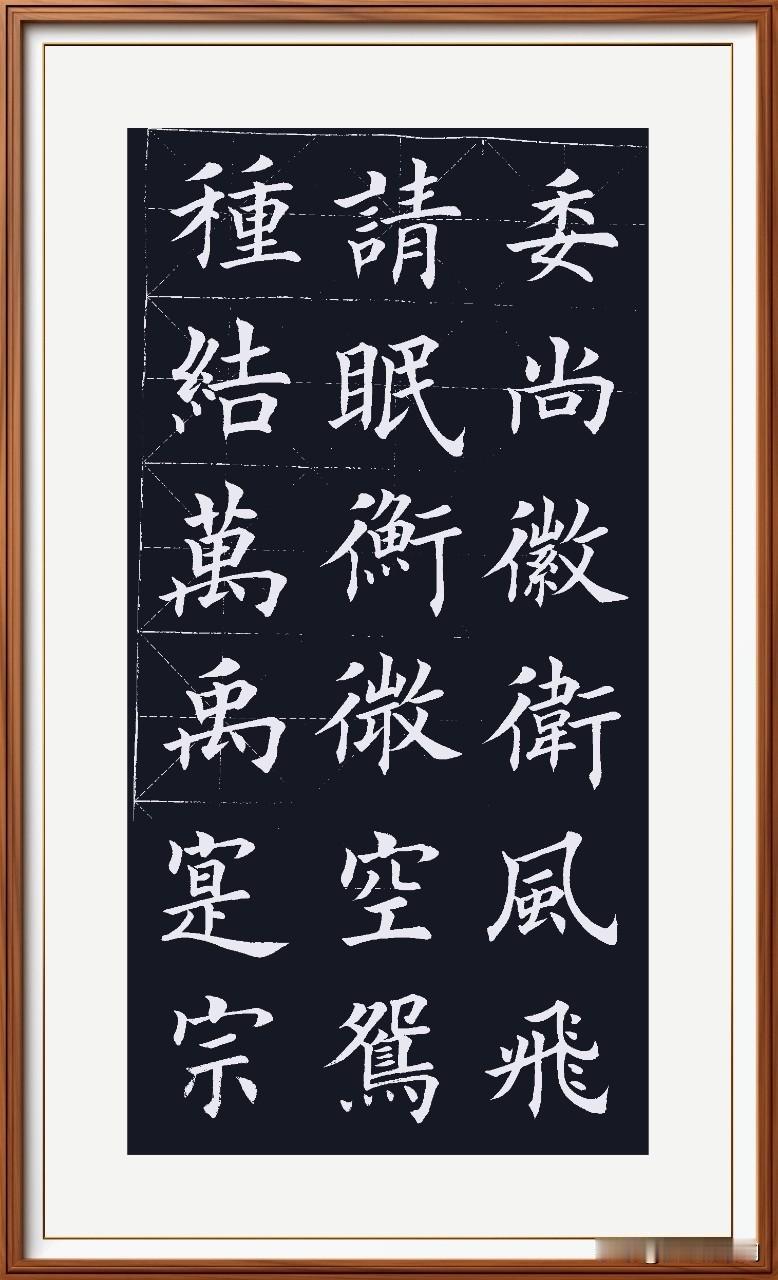 委尚徽衛風飛
請眠衡微空鴛
種結萬禹寔宗